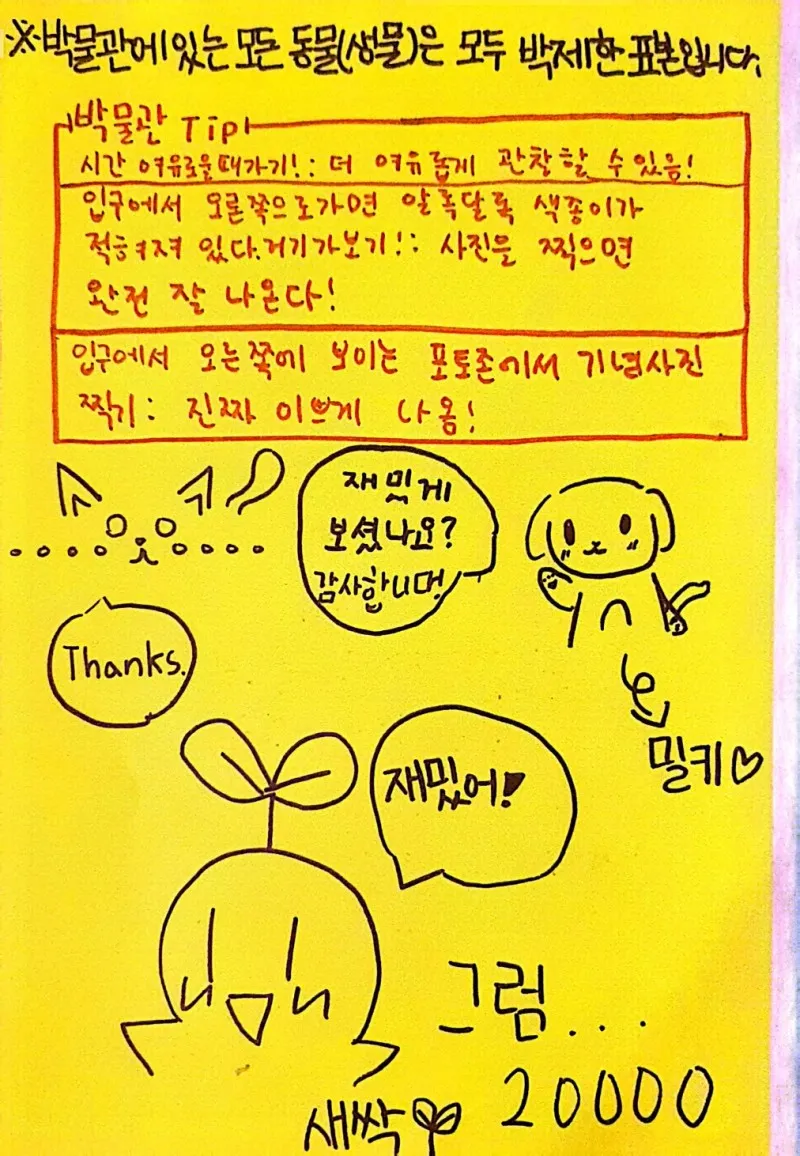 ※박물관에 있는 모든 동물(생물)은 모두 박제한 표본입니다.
박물관 Tip!
시간 여유로울때가기!: 더 여유롭게 관찰할 수 있음!
입구에서 오른쪽으로가면 알록달록 색종이가
적혀져 있다.거기가보기!: 사진을 찍으면
완전 잘 나온다!
입구에서 오른쪽에 보이는 포토존에서 기념사진
찍기: 진짜 이쁘게 나옴!
재밌게
보셨나요?
감사합니다!
Thanks.
밀키♡
재밌어!
그럼...
20000
새싹